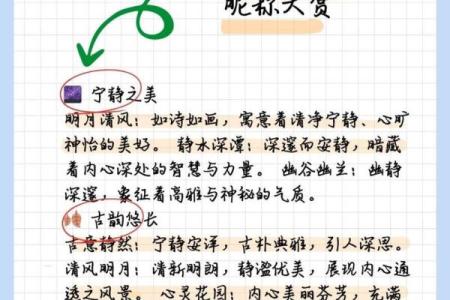 昵称大赏
宁静之美
明月清风：如诗如画，寓意着清净宁静、心旷
神怡的美好。 静水深潭：深邃而安静，暗藏
着内心深处的智慧与力量。 幽谷幽兰：幽静
深邃，象征着高雅与神秘的气质。
古韵悠长
古意静然：宁静安详，古朴典雅，引人深思。
清风明月：清新明朗，静谧优美，展现内心通
透之风景。 心灵花园：内心美丽芬芳，充满